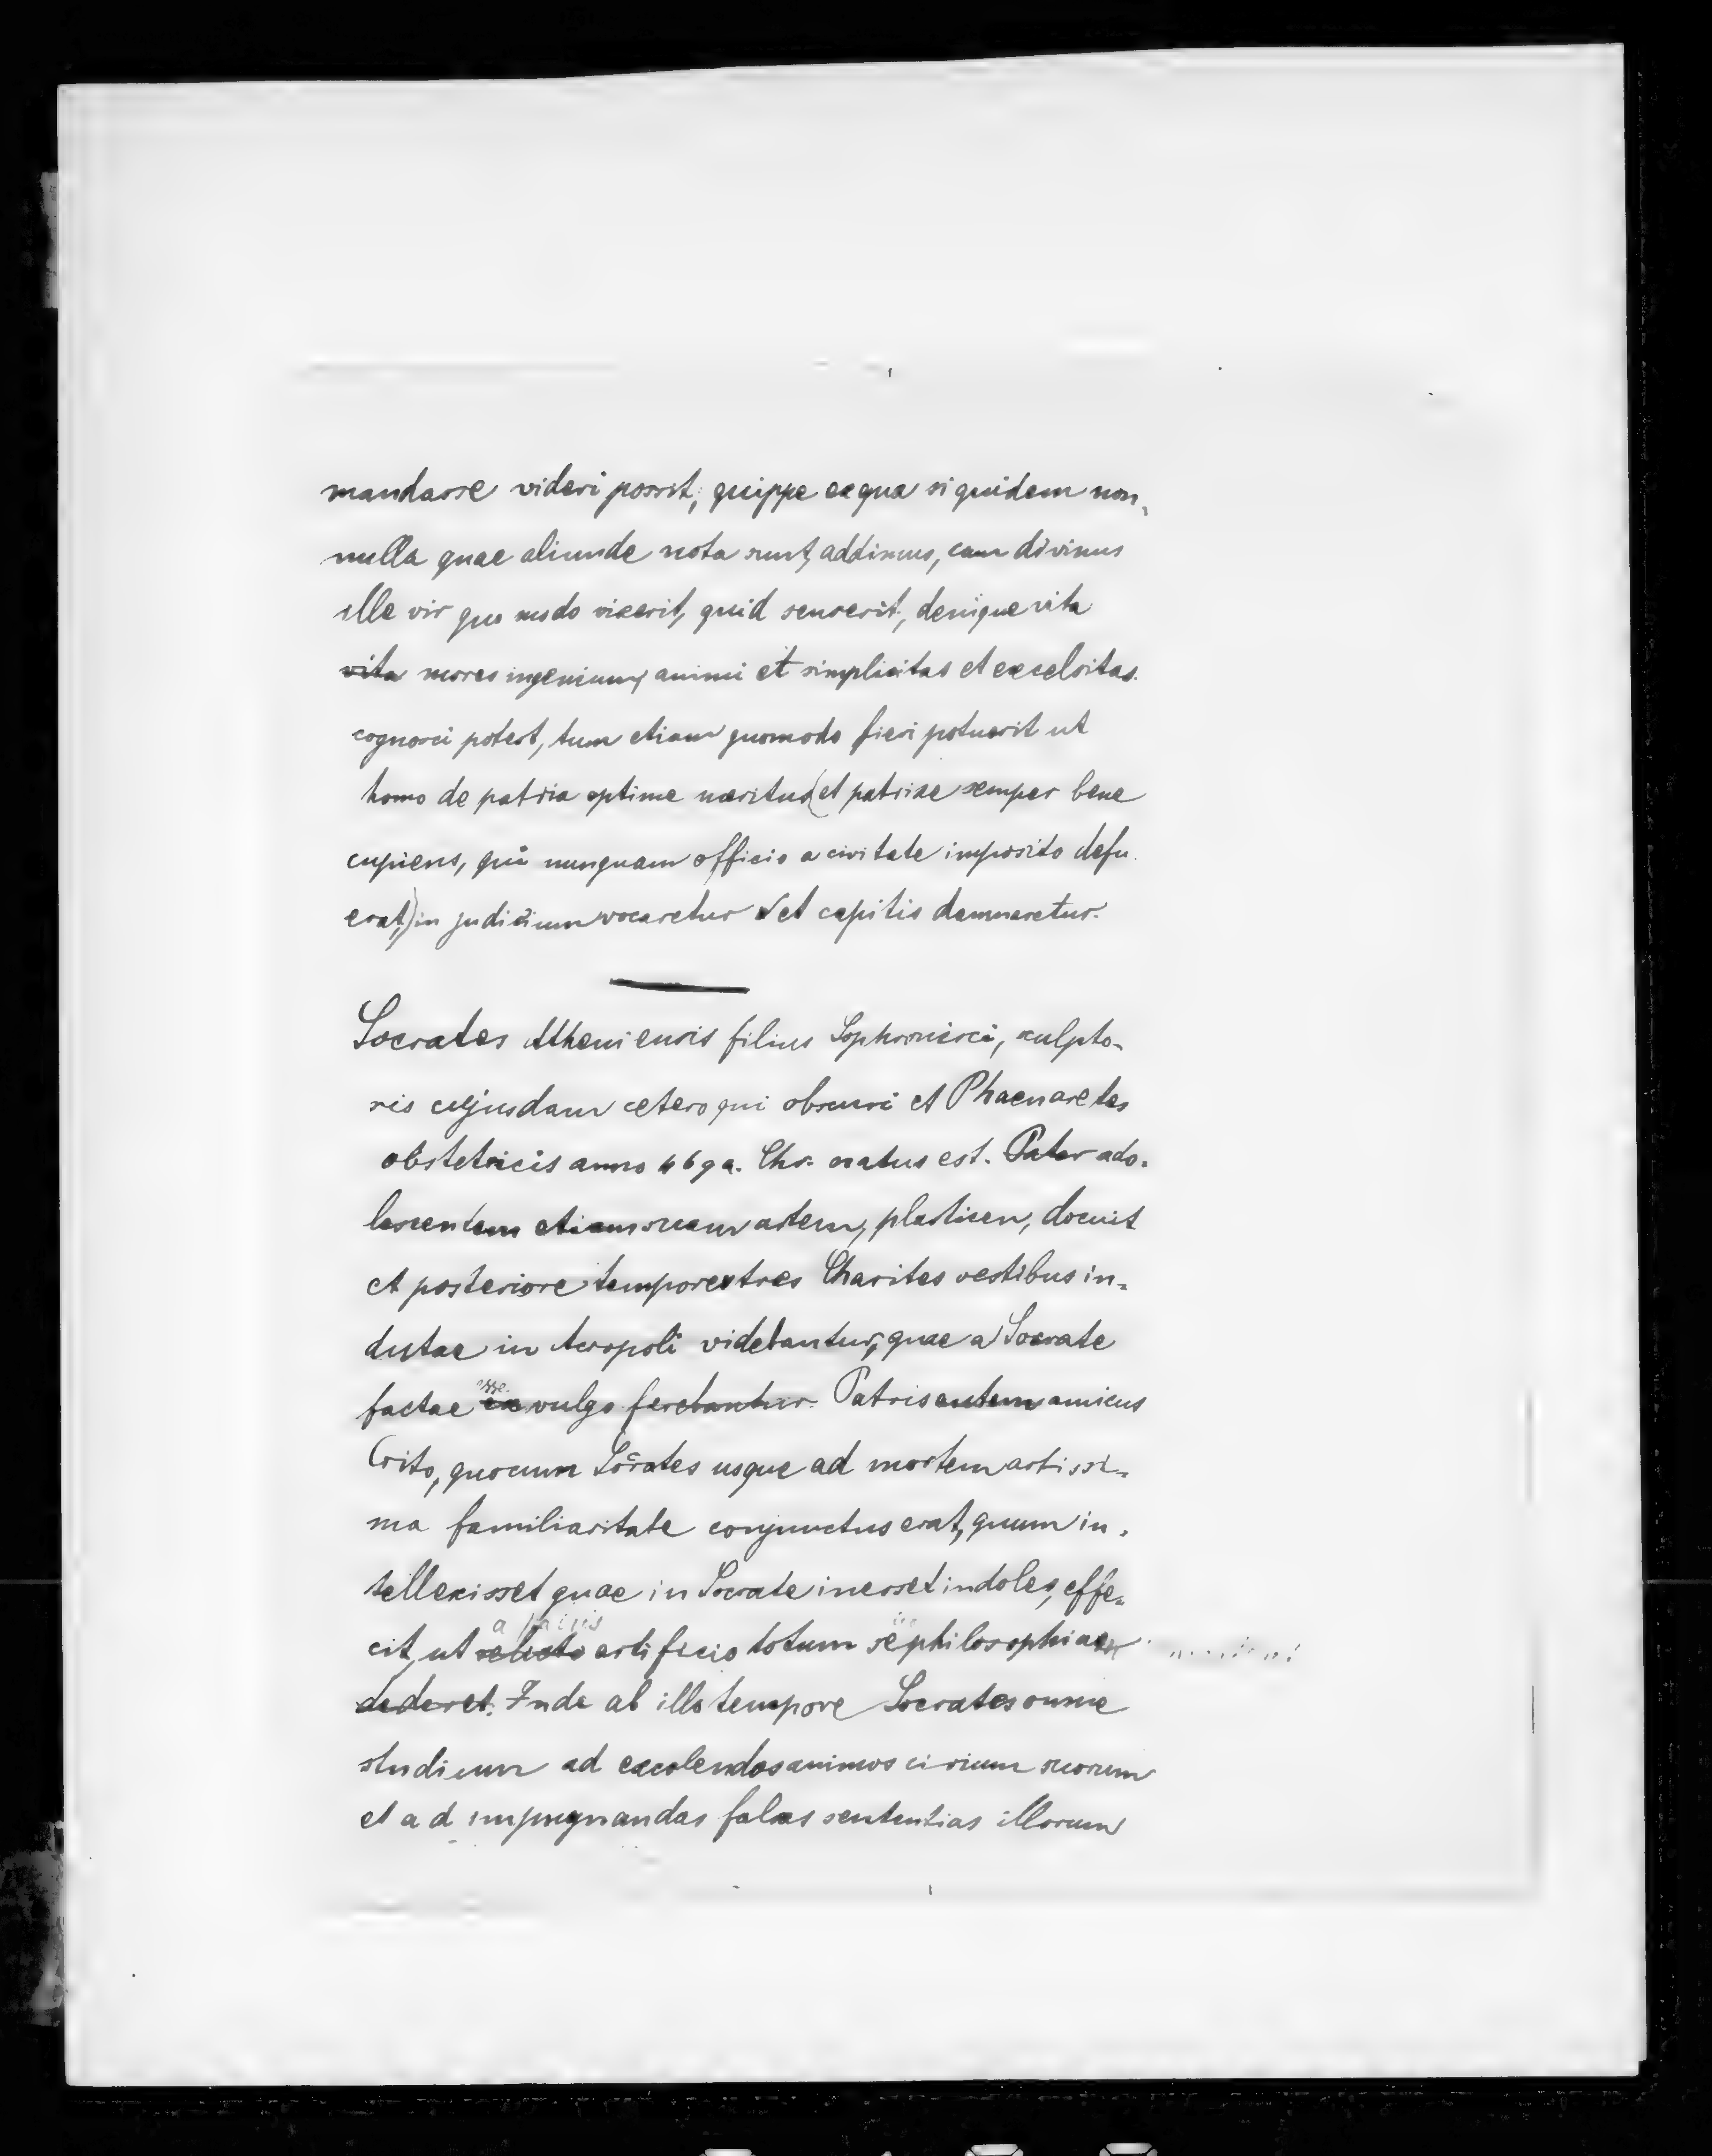 mandasse videri possit, quippe ex qua si quidem non-
nulla quae aliunde nota sunt, addimus, cum divinus
ille vir quo modo vixerit, quid senserit, denique vita
vita mores ingenium, animi et simplicitas et excelsitas
cognosci potest, tum etiam quomodo fieri potuerit ut
homo de patria optime meritus (et patriae semper bene
cupiens, qui nunquam officio a civitate imposito defu-
erat,) in judicium vocaretur et capitis damnaretur.
Socrates Atheniensis filius Sophronisci, sculpto-
ris cujusdam ceteroqui obscuri et Phaenaretes
obstetricis anno 469 a. Chr. natus est. Pater ado-
lescentem etiam suam artem, plasticen, docuit
et posteriore tempore tres Charites vestibus in-
dutae in Acropoli videbantur, quae a Socrate
factae esse vulgo ferebantur. Patris autem amicus
Crito, quocum Socrates usque ad mortem artissi-
ma familiaritate conjunctus erat, quum in-
tellexisset quae in Socrate inesset indoles, effe-
cit, ut relicto artificio totum se philosophiae
dederet. Inde ab illo tempore Socrates omne
studium ad excolendos animos civium suorum
et ad impugnandas falsas sententias illorum